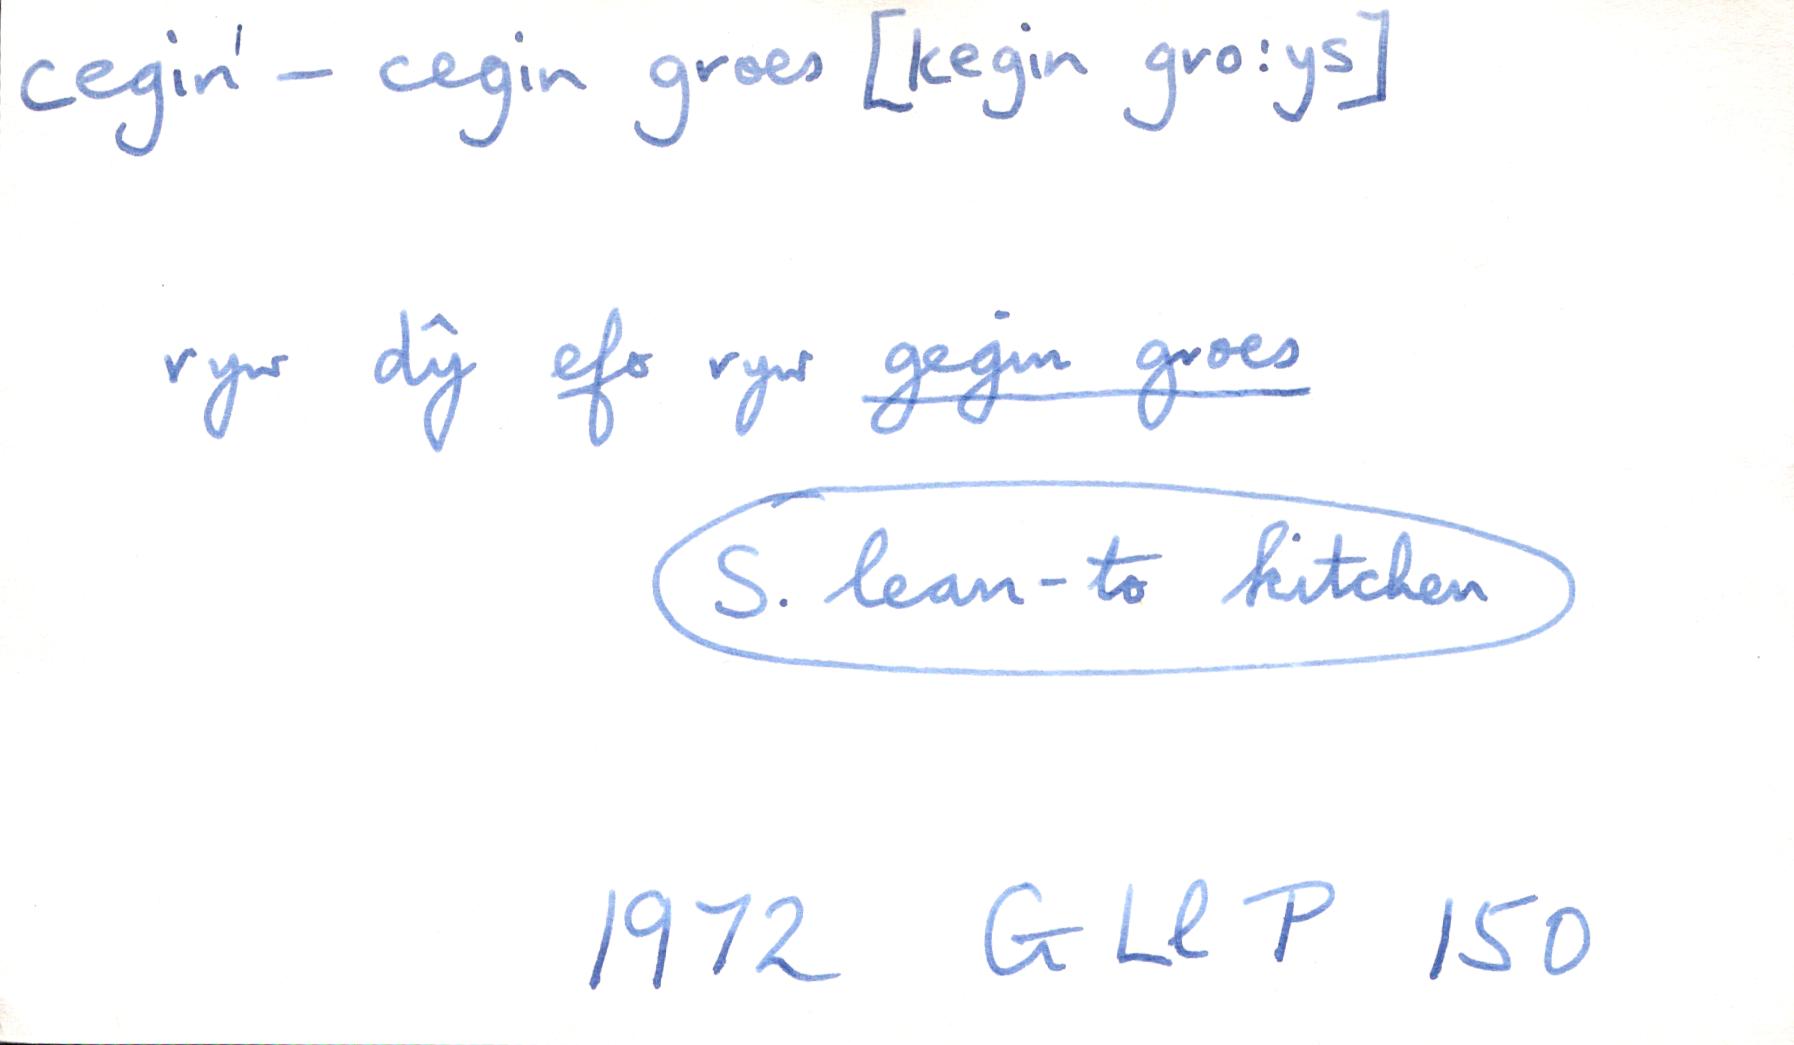 cegin¹ – cegin groes [kegin gro:ys]
ryw dŷ efo ryw gegin groes
S. lean-to kitchen
1972 G Ll P 150